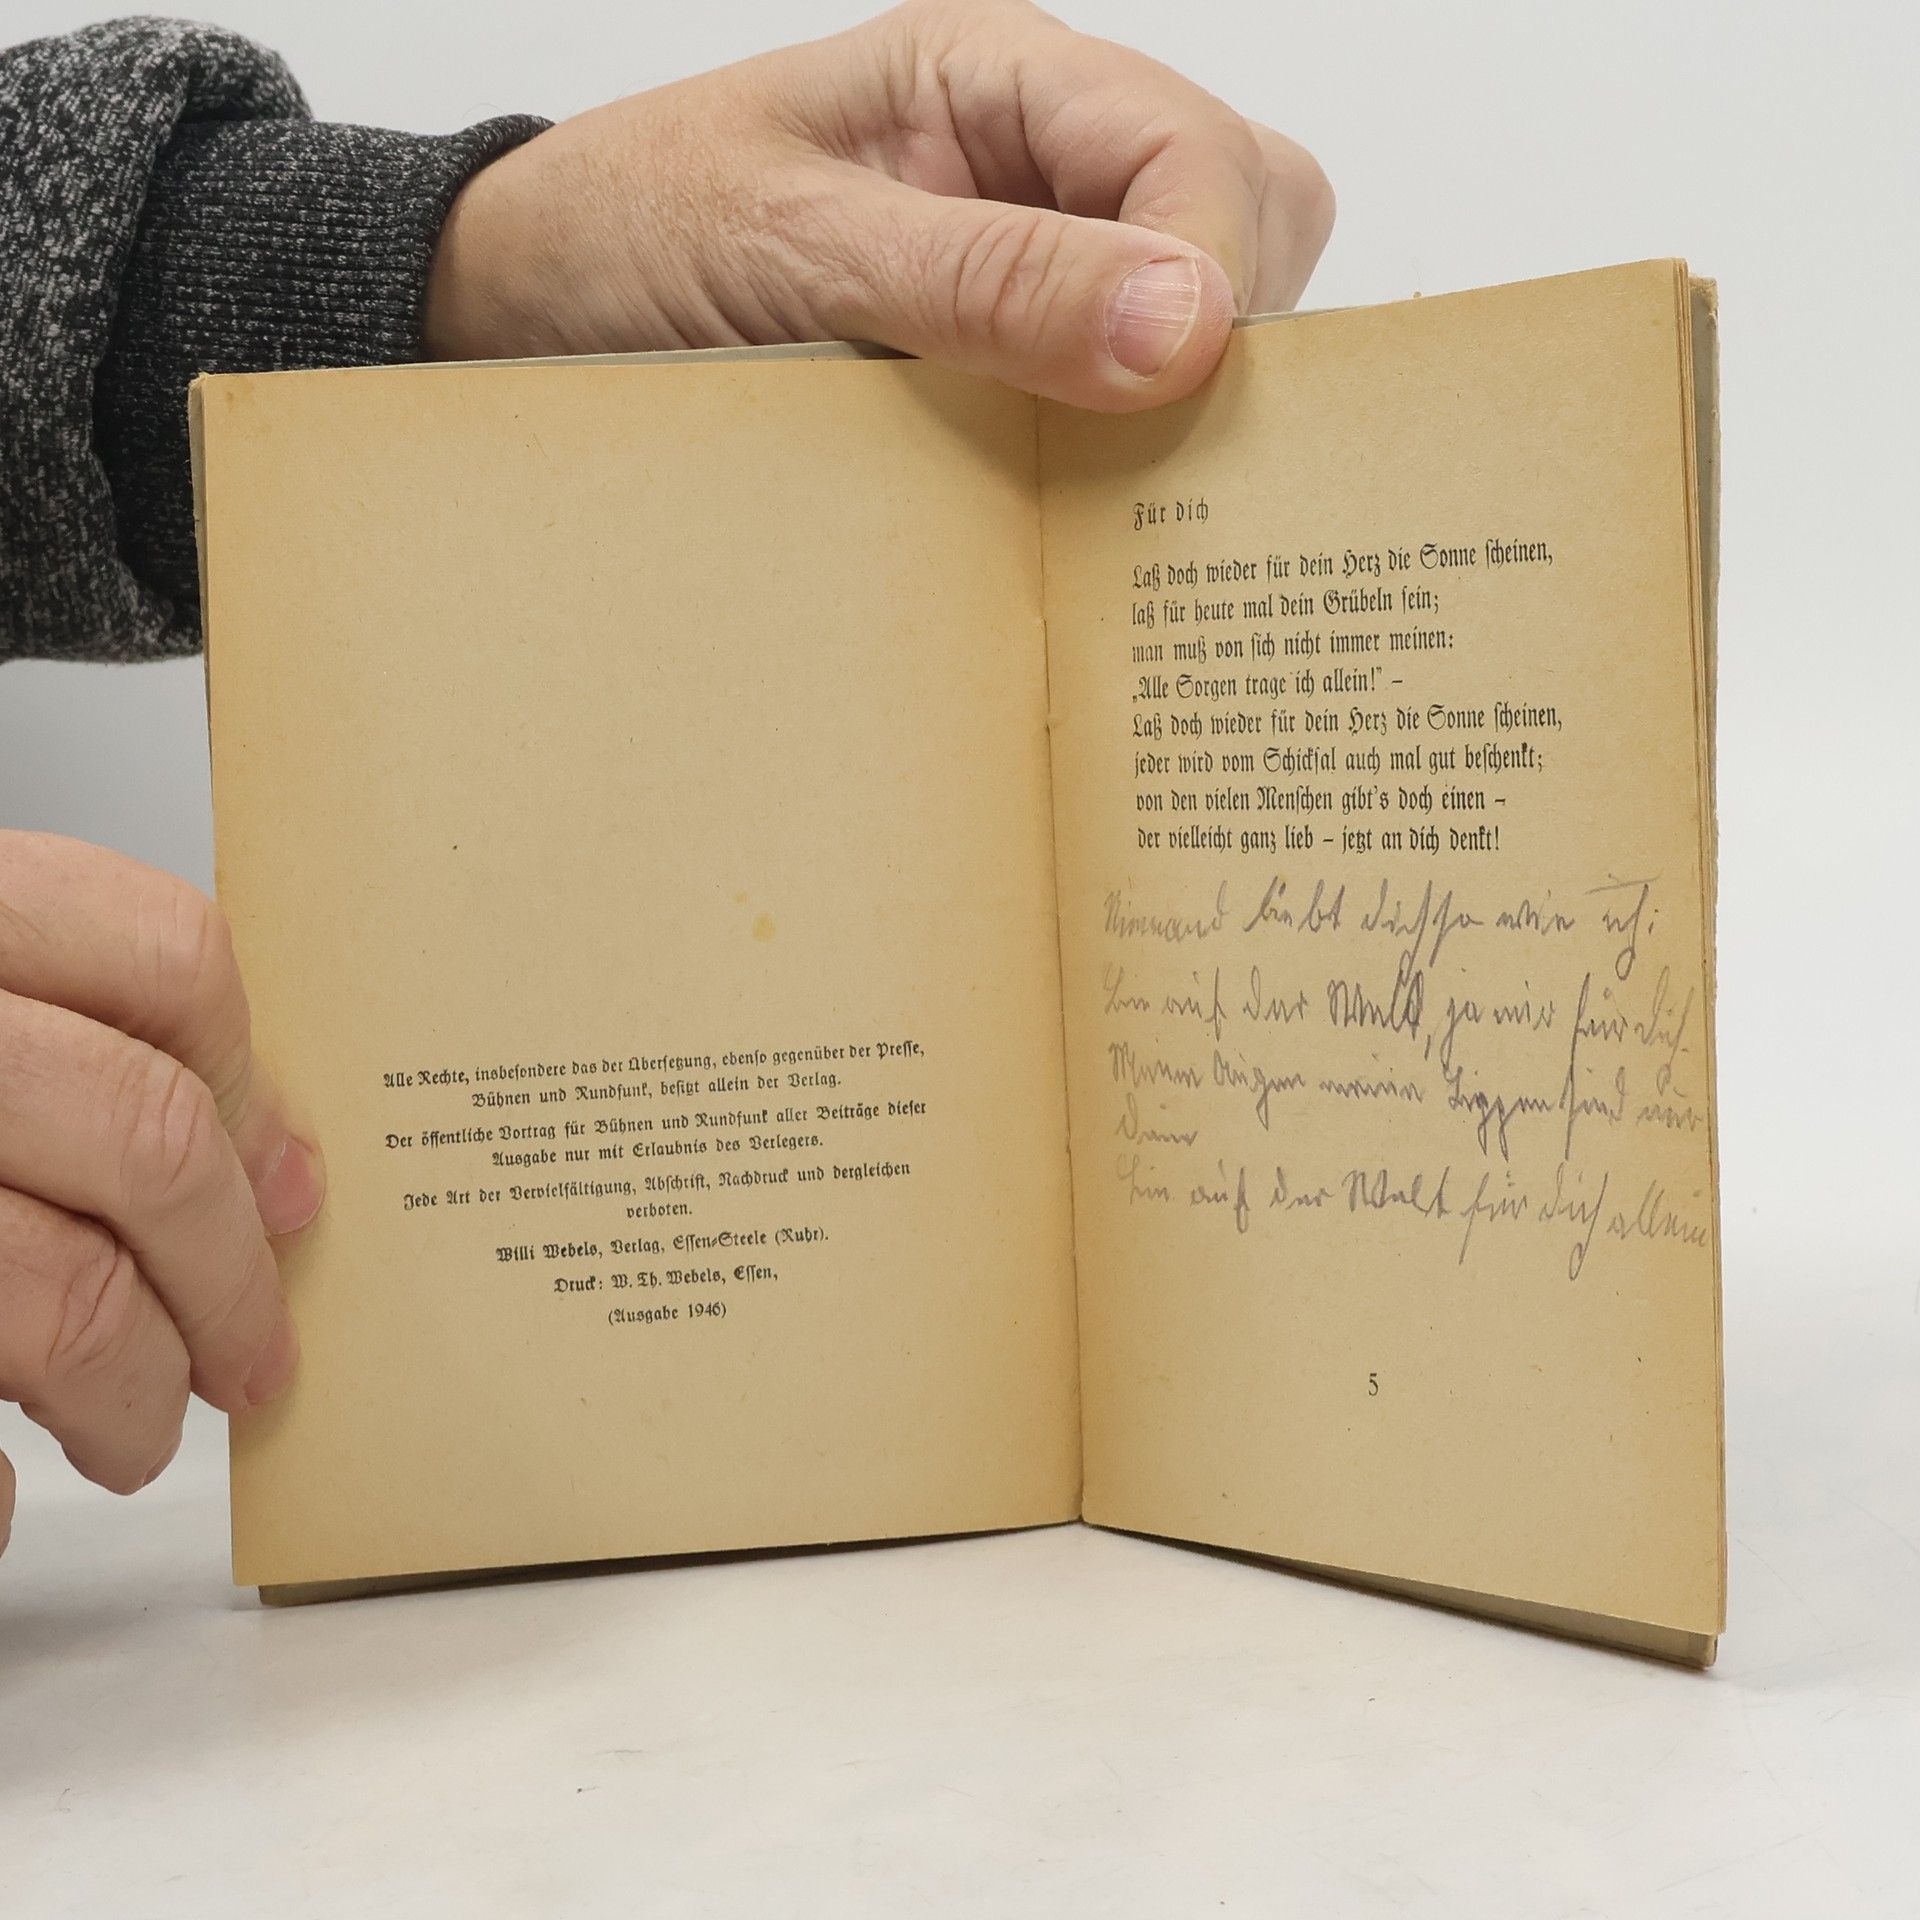 Alle Rechte, insbesondere das der Übersetzung, ebenso gegenüber der Presse,
Bühnen und Rundfunk, besitzt allein der Verlag.
Der öffentliche Vortrag für Bühnen und Rundfunk aller Beiträge dieser
Ausgabe nur mit Erlaubnis des Verlegers.
Jede Art der Vervielfältigung, Abschrift, Nachdruck und dergleichen
verboten.
Willi Webels, Verlag, Essen-Steele (Ruhr).
Druck: W. Th. Webels, Essen,
(Ausgabe 1946)
Für dich
Laß doch wieder für dein Herz die Sonne scheinen,
laß für heute mal dein Grübeln sein;
man muß von sich nicht immer meinen:
„Alle Sorgen trage ich allein!" –
Laß doch wieder für dein Herz die Sonne scheinen,
jeder wird vom Schicksal auch mal gut beschenkt;
von den vielen Menschen gibt's doch einen –
der vielleicht ganz lieb – jetzt an dich denkt!
Niemand liebt dich so wie ich:
Bin auf der Welt, ja nur für dich.
Meine Augen meine Lippen sind nur
Dein
Bin auf der Welt für dich allein
5